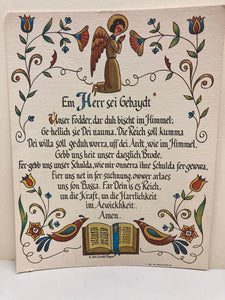 Em Herr sei Gebaydt
Unser Fodder, dar duh bischt im Himmel;
Ge-hellich sie Dei nauma. Die Reich soll kumma
Dei willa soll geduh worra, uff dei Ardt, wie im Himmel.
Gebb uns heit unser daeglich Brode.
Fer-gebb uns unser Schulda, wie mir onnera ihre Schulda fer-gewwa.
Fier uns net in fer-suchung, owwer arlaes
uns fon Bassa. Far Dein is es Reich,
un die Kraft, un die Harrlichkeit
im Aewichkheit.
Amen.